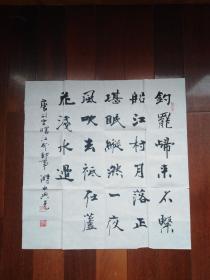 钓罷歸来不繫
船江村月落正
堪眠縱然一夜
風吹去祗在蘆
花淺水邊
唐司空曙江村即事